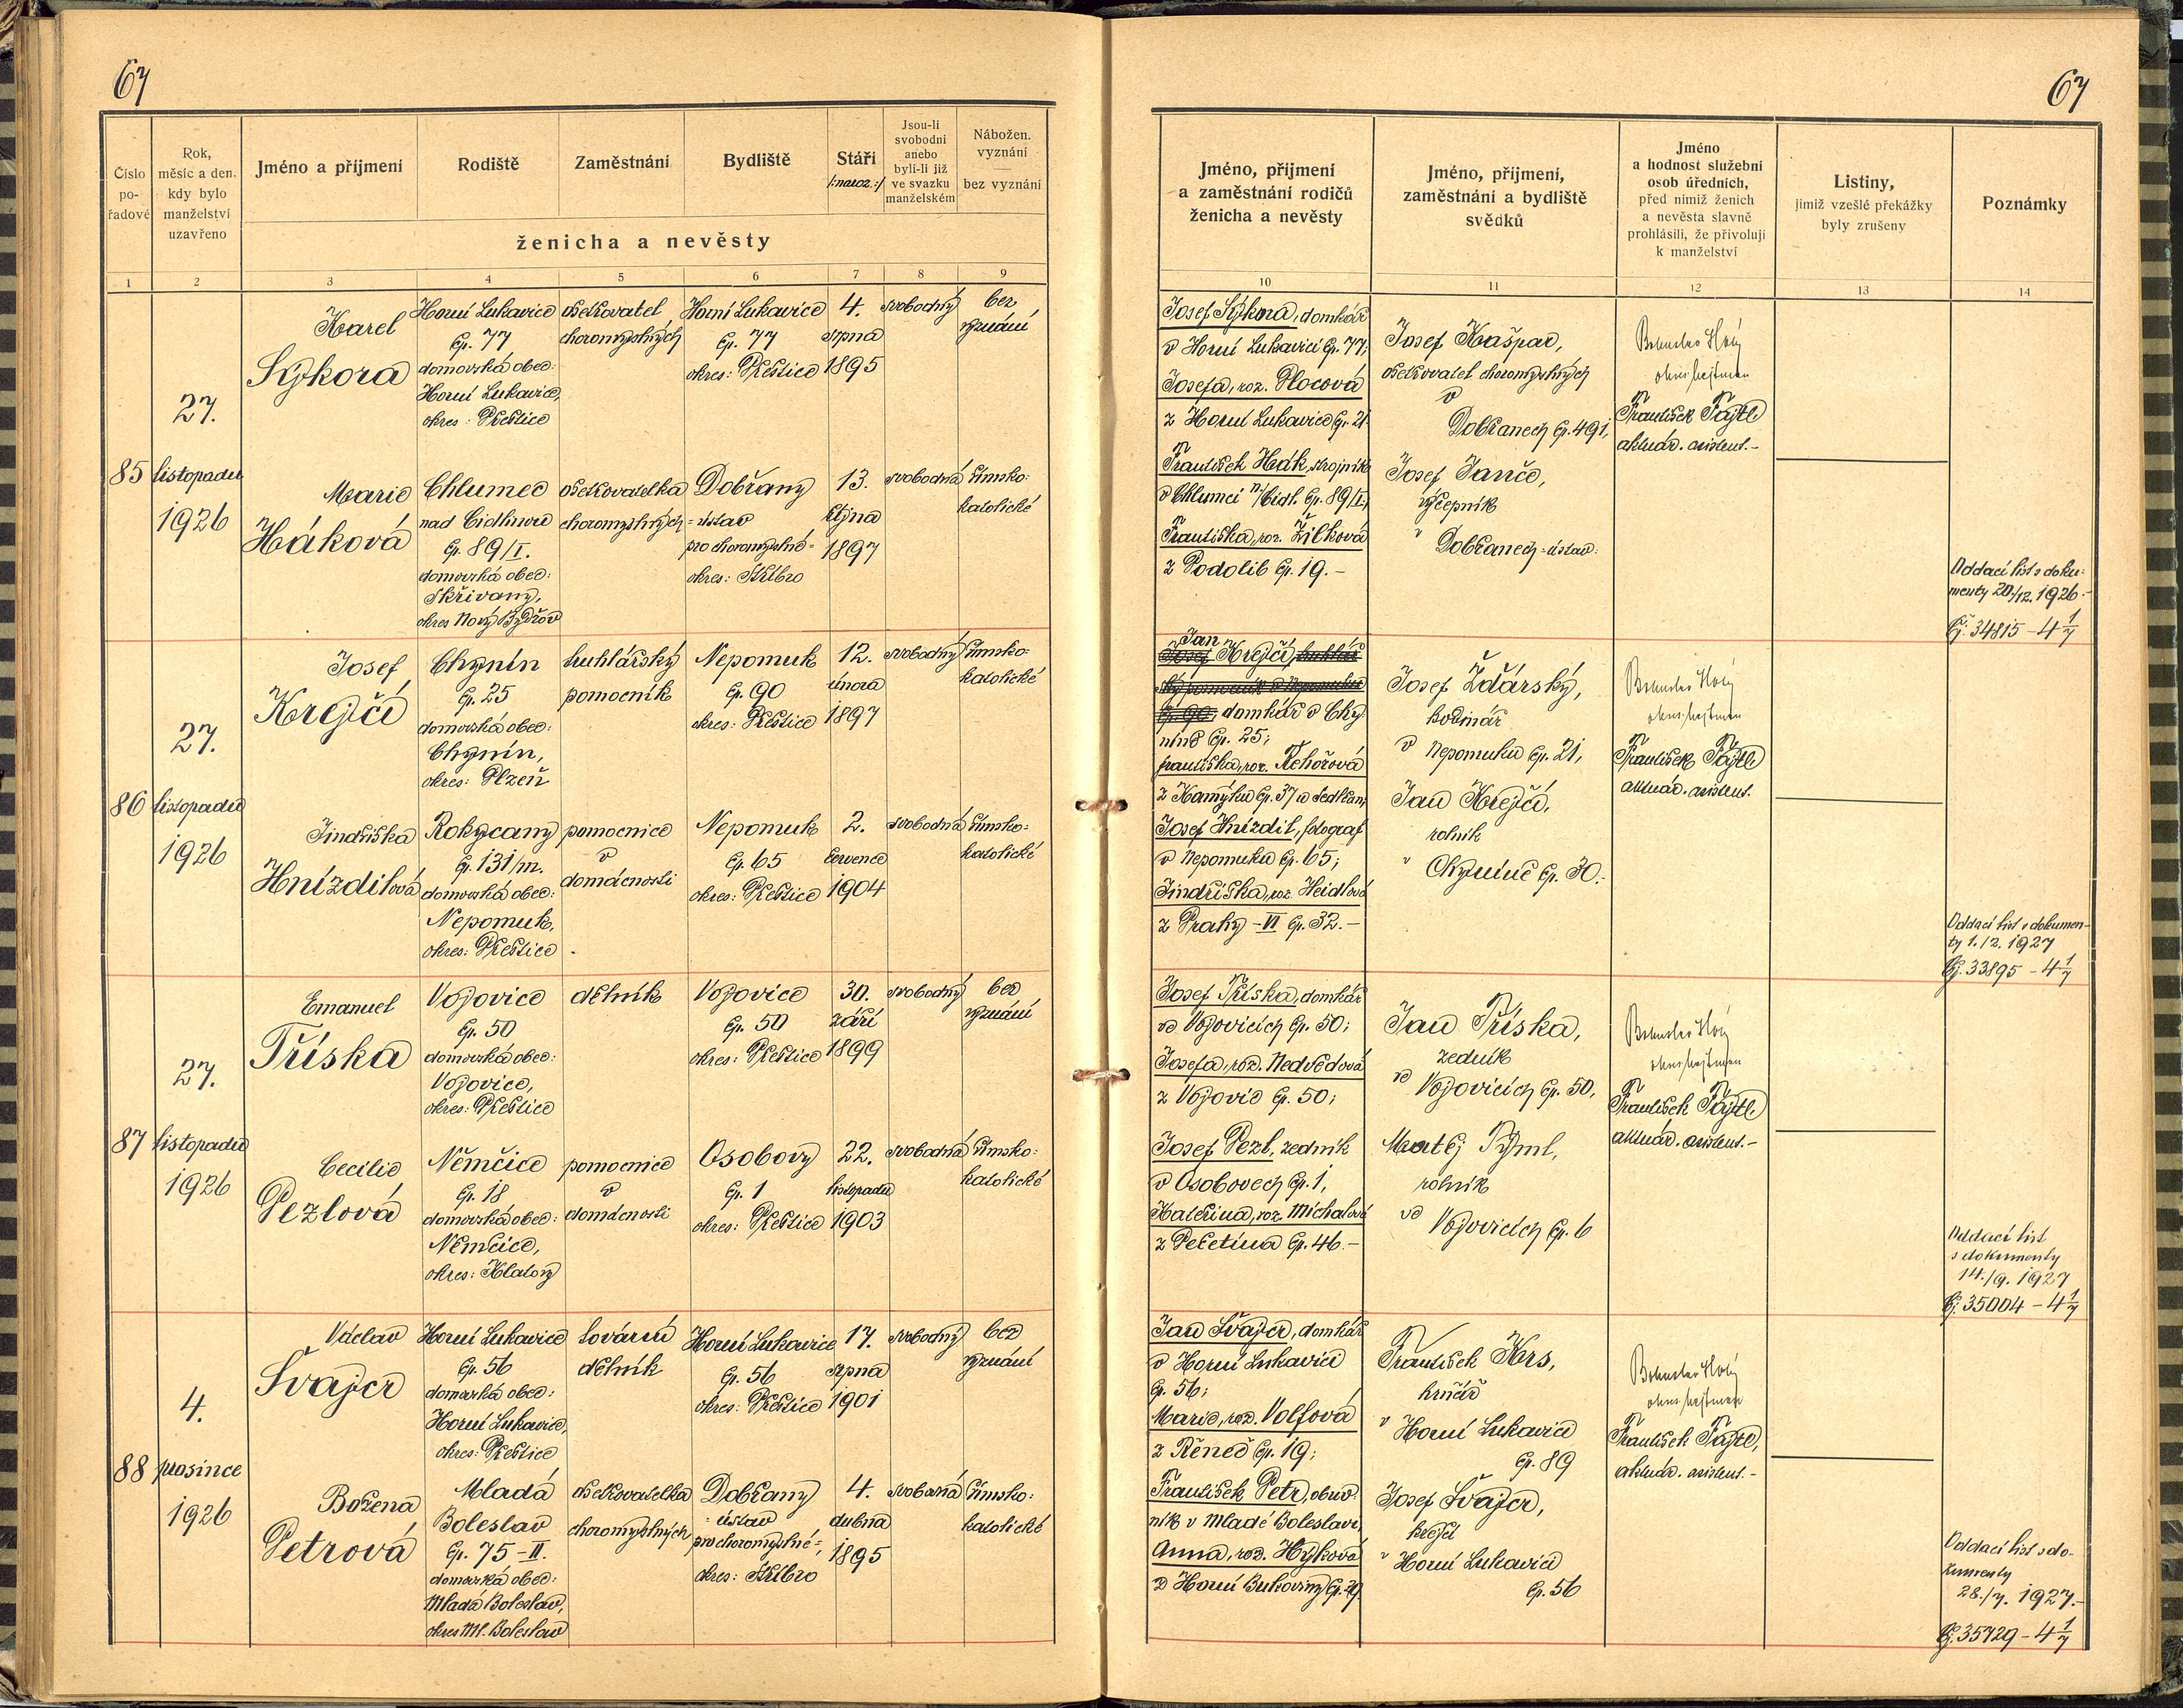 67
67
Číslo
po-
řadové
Rok,
měsíc a den,
kdy bylo
manželství
uzavřeno
Jméno a příjmení
Rodiště
Zaměstnání
Bydliště
Stáří
/:naroz.:/
Jsou-li
svobodni
anebo
byli-li již
ve svazku
manželském
Nábožen.
vyznání
bez vyznání
ženicha a nevěsty
1 2 3 4 5 6 7 8 9
Jméno, příjmení
a zaměstnání rodičů
ženicha a nevěsty
Jméno, příjmení,
zaměstnání a bydliště
svědků
Jméno
a hodnost služební
osob úředních,
před nimiž ženich
a nevěsta slavně
prohlásili, že přivolují
k manželství
Listiny,
jimiž vzešlé překážky
byly zrušeny
Poznámky
10 11 12 13 14
85
27.
listopadu
1926
Karel
Sýkora
Horní Lukavice
čp. 77
domovská obec:
Horní Lukavice,
okres: Přeštice
ošetřovatel
choromyslných
Horní Lukavice
čp. 77
okres: Přeštice
4.
srpna
1895
svobodný
bez
vyznání
Marie
Háková
Chlumec
nad Cidlinou
čp. 89/I.
domovská obec:
Skřivany,
okres Nový Bydžov
ošetřovatelka
choromyslných
Dobřany
-ústav
pro choromyslné-
okres: Stříbro
13.
října
1897
svobodná
římsko-
katolické
Josef Sýkora, domkář
v Horní Lukavici čp. 77;
Josefa, roz. Plocová
z Horní Lukavice čp. 21.
František Hák, strojník
v Chlumci n/Cidl. čp. 89/I;
Františka, roz. Žilková
z Podolib čp. 19.-
Josef Kašpar,
ošetřovatel choromyslných
v
Dobřanech čp. 491,
Josef Janče,
výčepník
v Dobřanech-ústav.
Bohuslav Holý
okres. hejtman
František Fajtl
aktuár. asistent.-
Oddací list s doku-
menty 20./12. 1926.-
Čj. 34815 - 4 1/7
86
27.
listopadu
1926
Josef
Krejčí
Chynín
čp. 25
domovská obec:
Chynín,
okres: Plzeň
truhlářský
pomocník
Nepomuk
čp. 90
okres: Přeštice
12.
února
1897
svobodný
římsko-
katolické
Jindřiška
Hnízdilová
Rokycany
čp. 131/m.
domovská obec:
Nepomuk,
okres: Přeštice
pomocnice
v
domácnosti
Nepomuk
čp. 65
okres: Přeštice
2.
července
1904
svobodná
římsko-
katolické
Jan
Josef Krejčí, truhlář-
ský pomocník v Nepomuku
čp. 90; domkář v Chy-
níně čp. 25;
Františka, roz. Řehořová
z Kamýku čp. 37 u Sedlčan,
Josef Hnízdil, fotograf
v Nepomuku čp. 65;
Jindřiška, roz. Heidlová
z Prahy - VI čp. 32.-
Josef Žďárský,
hodinář
v Nepomuku čp. 21,
Jan Krejčí,
rolník
v Chyníně čp. 30.-
Bohuslav Holý
okres. hejtman
František Fajtl
aktuár. asistent.
Oddací list s dokumen-
ty 1./2. 1927
Čj. 33895 - 4 1/7
87
27.
listopadu
1926
Emanuel
Tříska
Vojovice
čp. 50
domovská obec:
Vojovice,
okres: Přeštice
dělník
Vojovice
čp. 50
okres: Přeštice
30.
září
1899
svobodný
bez
vyznání
Cecilie
Pezlová
Němčice
čp. 18
domovská obec:
Němčice,
okres: Klatovy
pomocnice
v
domácnosti
Osobovy
čp. 1
okres: Přeštice
22.
listopadu
1903
svobodná
římsko-
katolické
Josef Tříska, domkář
ve Vojovicích čp. 50;
Josefa, roz. Nedvědová
z Vojovic čp. 50;
Josef Pezl, zedník
v Osobovech čp. 1,
Kateřina, roz. Michalová
z Pečetína čp. 46.-
Jan Tříska,
zedník
ve Vojovicích čp. 50,
Matěj Tyml,
rolník
ve Vojovicích čp. 6
Bohuslav Holý
okres. hejtman
František Fajtl
aktuár. asistent.-
Oddací list
s dokumenty
14./9. 1927
Čj. 35004 - 4 1/7
88
4.
prosince
1926
Václav
Švajcr
Horní Lukavice
čp. 56
domovská obec:
Horní Lukavice,
okres: Přeštice
tovární
dělník
Horní Lukavice
čp. 56
okres: Přeštice
17.
srpna
1901
svobodný
bez
vyznání
Božena
Petrová
Mladá
Boleslav
čp. 75-II.
domovská obec:
Mladá Boleslav,
okres Ml. Boleslav
ošetřovatelka
choromyslných
Dobřany
-ústav
pro choromyslné-,
okres: Stříbro
4.
dubna
1895
svobodná
římsko-
katolické
Jan Švajcr, domkář
v Horní Lukavici
čp. 56;
Marie, roz. Volfová
z Řeneč čp. 19;
František Petr, obuv-
ník v Mladé Boleslavi,
Anna, roz. Hýková
z Horní Bukoviny čp. 29.
František Kors,
hrnčář
v Horní Lukavici
čp. 89
Josef Švajcr,
krejčí
v Horní Lukavici
čp. 56
Bohuslav Holý
okres. hejtman
František Fajtl,
aktuár. asistent.-
Oddací list s do-
kumenty
28./7. 1927.-
Čj. 35729 - 4 1/7